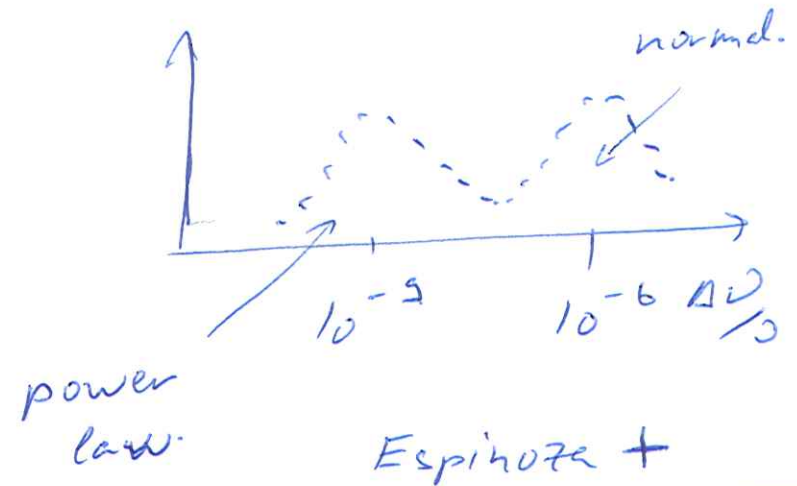 normal.
10⁻⁹ 10⁻⁶ Δν/ν
power
law.
Espinoza +